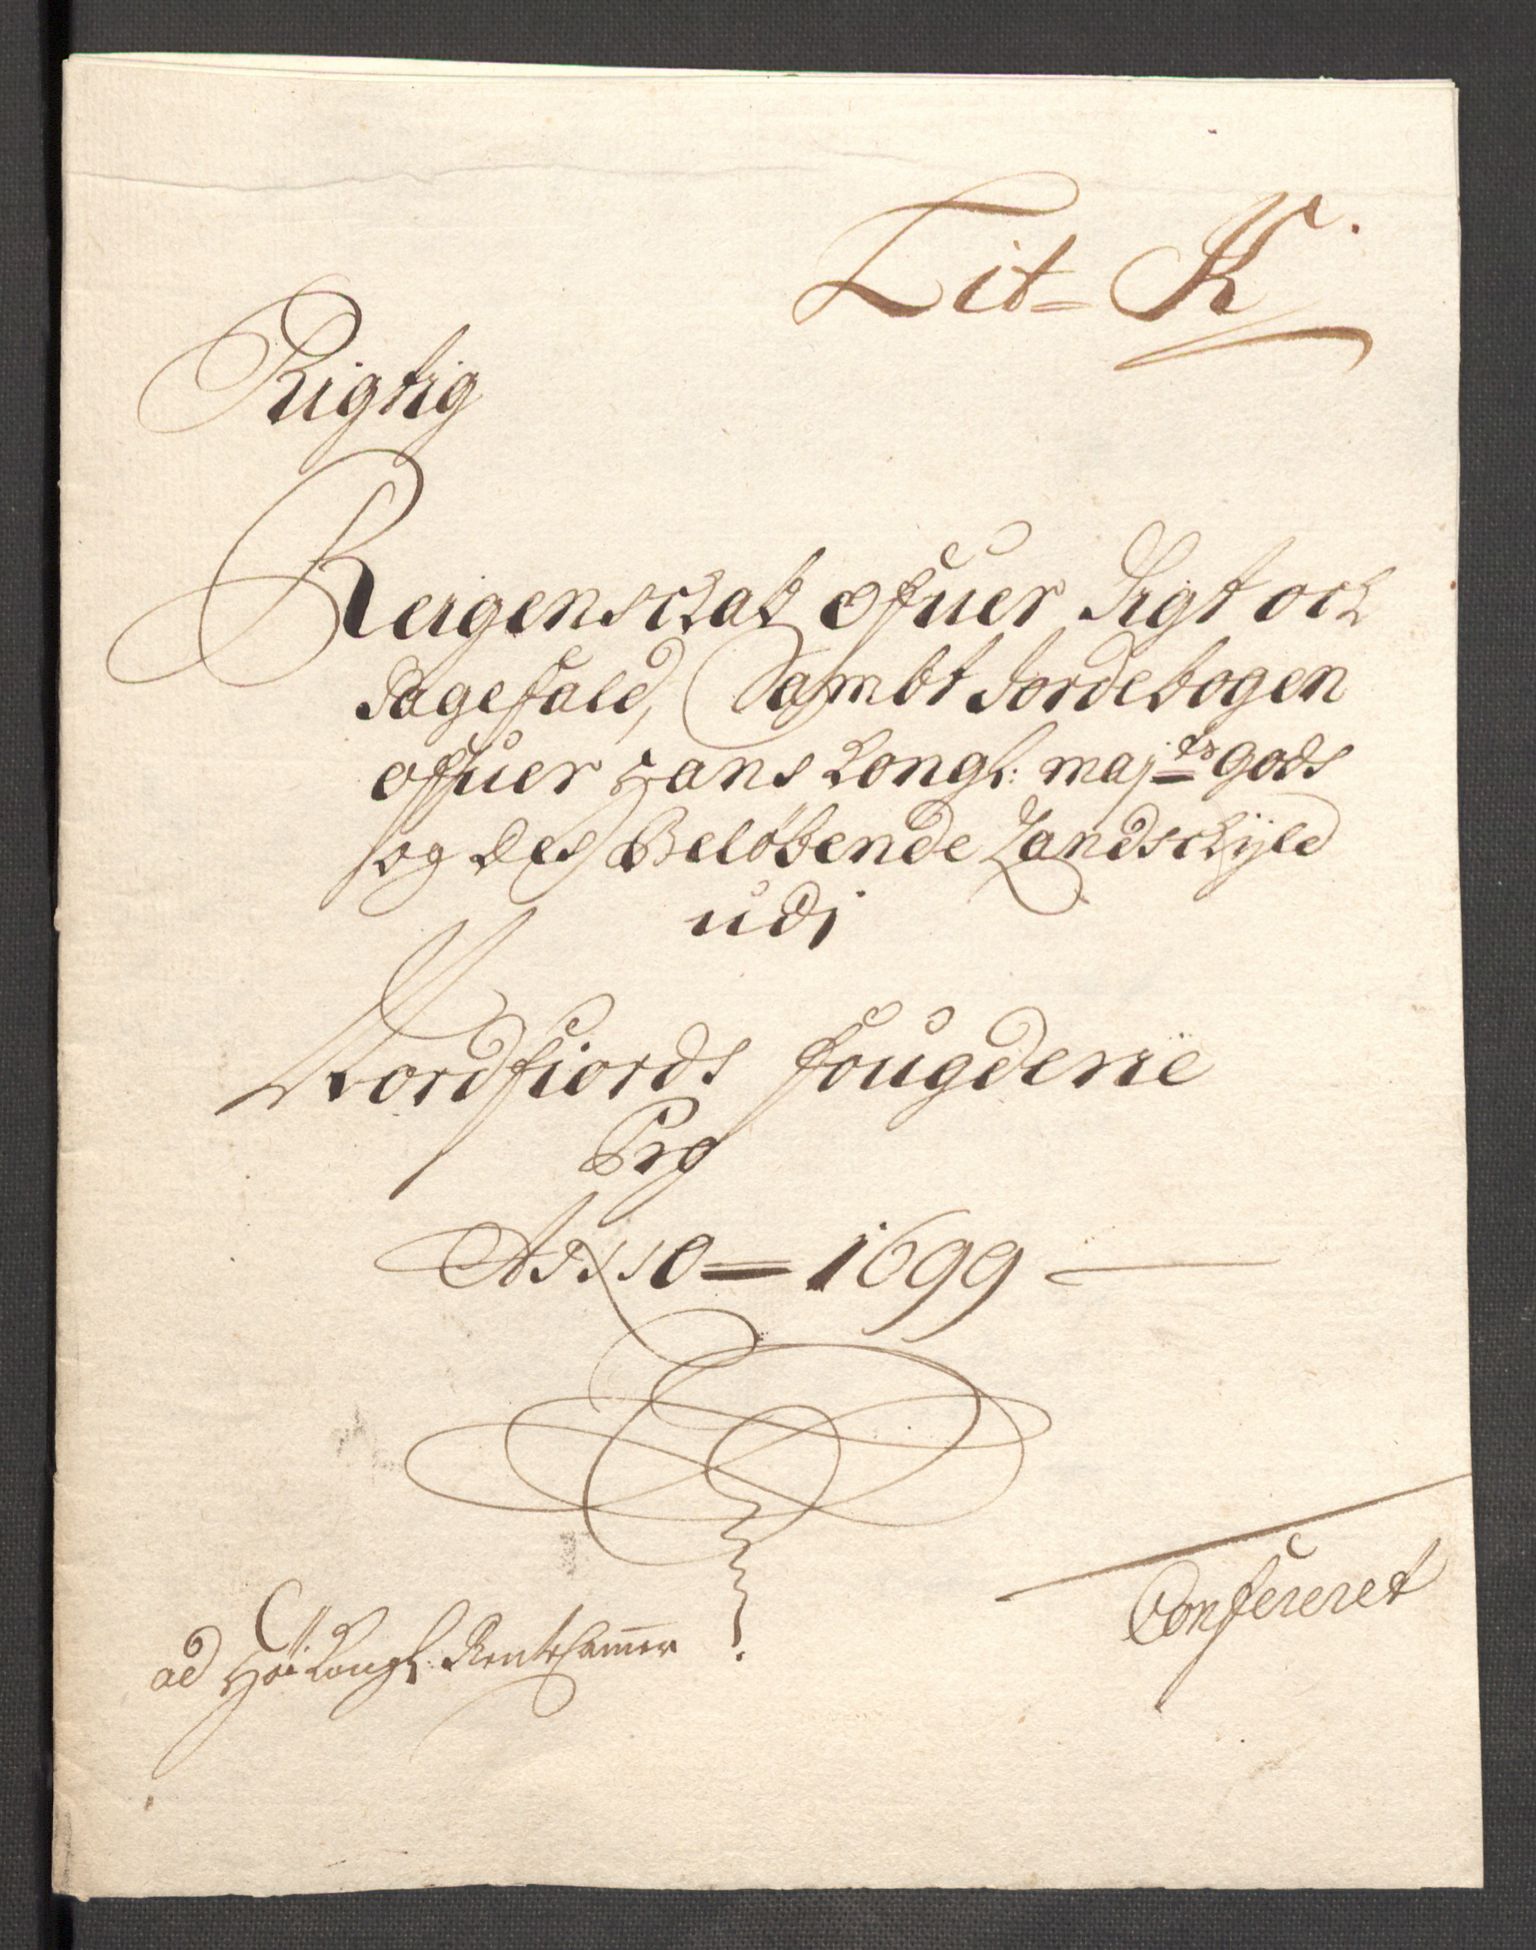 Lit= K.
Rigtig
Reigenschab ofuer Sigt och
Sagefald, Sambt Jordebogen
ofuer Hans Kongl: maj:ts gods
og des Beløbende Landschÿld
udj
Nordfiords fougderie
Prg
Anno = 1699
Confereret
ad Høi: Kongl: Rente Cammer